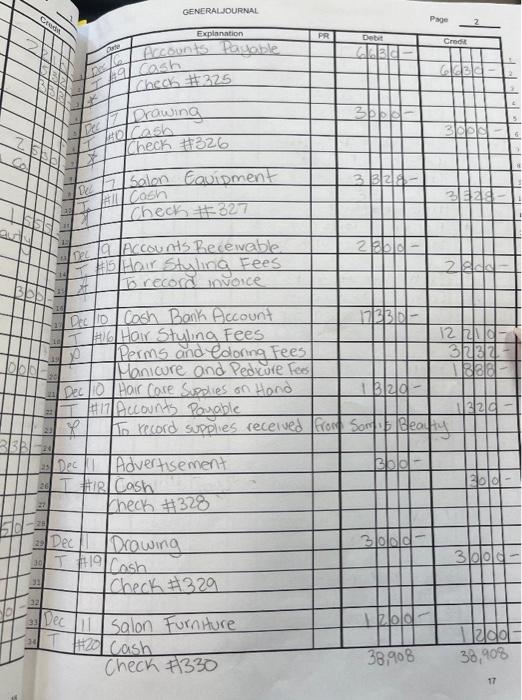 GENERAL JOURNAL
Page 2
Date Explanation PR Debit Credit
Dec 6 Accounts Payable 6630-
T #9 Cash 6630-
Check #325
Dec 7 Drawing 3000-
T #10 Cash 3000-
Check #326
Dec 7 Salon Equipment 3328-
T #11 Cash 3328-
Check #327
Dec 9 Accounts Receivable 2800-
T #15 Hair Styling Fees 2800-
To record invoice
Dec 10 Cash Bank Account 17330-
T #16 Hair Styling Fees 12210-
Perms and Coloring Fees 3232-
Manicure and Pedicure Fees 1888-
Dec 10 Hair Care Supplies on Hand 1320-
T #17 Accounts Payable 1320-
To record supplies received from Beauty
Dec 11 Advertisement 300-
T #18 Cash 300-
Check #328
Dec 11 Drawing 3000-
T #19 Cash 3000-
Check #329
Dec 11 Salon Furniture 1200-
T #20 Cash 1200-
Check #330 38,908 38,908
17